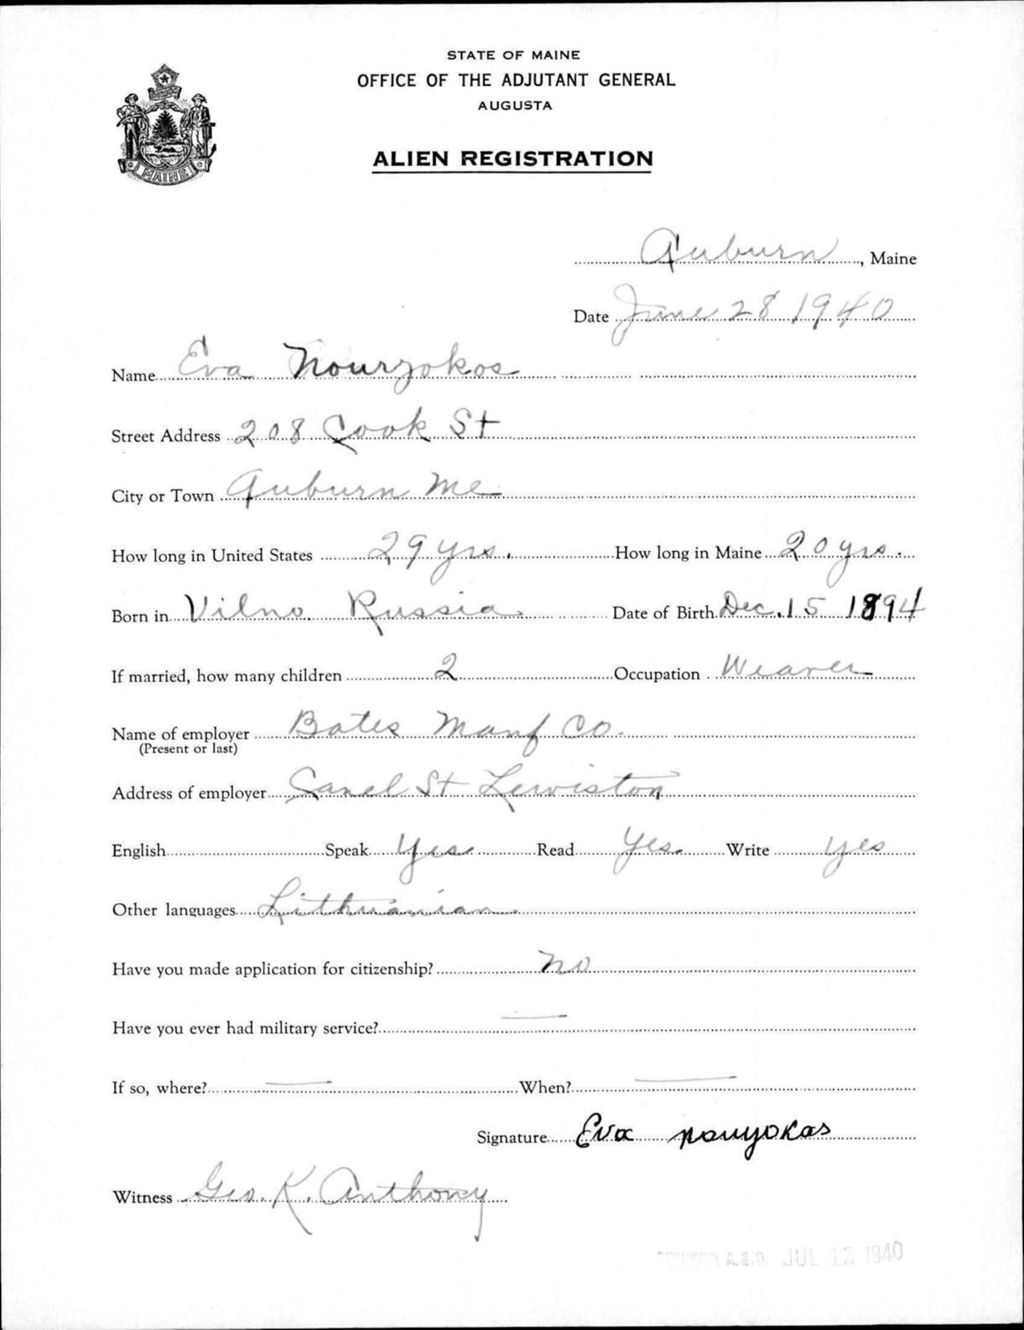 STATE OF MAINE
OFFICE OF THE ADJUTANT GENERAL
AUGUSTA
MAINE
ALIEN REGISTRATION
Auburn, Maine
Date June 28 1940
Name Eva Nouryokos
Street Address 208 Cook St
City or Town Auburn Me
How long in United States 29 yrs. How long in Maine 20 yrs.
Born in Vilno. Russia. Date of Birth Dec. 15 1894
If married, how many children 2 Occupation Weaver
Name of employer Bates Manf Co.
(Present or last)
Address of employer Canel St Lewiston
English Speak Yes Read Yes. Write yes
Other languages Lithuanian
Have you made application for citizenship? No
Have you ever had military service? —
If so, where? — When? —
Signature Eva nouyokas
Witness Geo. K. Anthony
JUL 12 1940